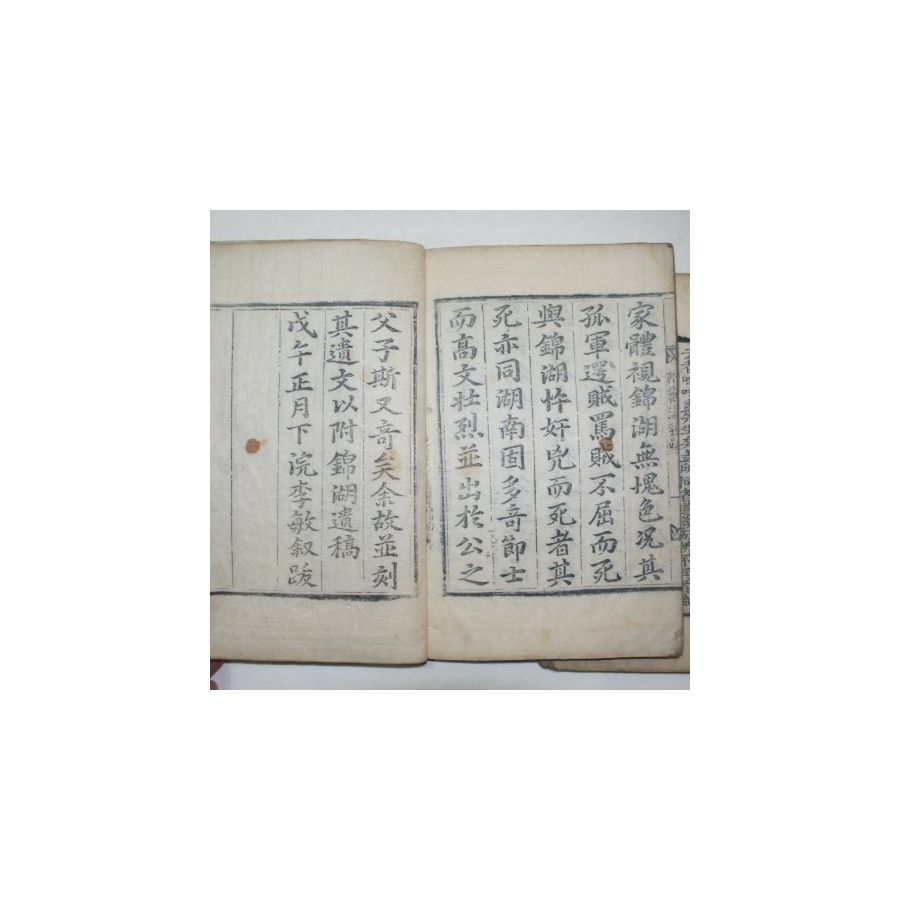 家體視錦湖無塊色况其
孤軍遌賊罵賊不屈而死
與錦湖忤奸兇而死者其
死亦同湖南固多竒節士
而髙文壮烈並出於公之
父子斯又竒矣余故並刻
其遺文以附錦湖遺稿
戊午正月下浣李敏叙跋